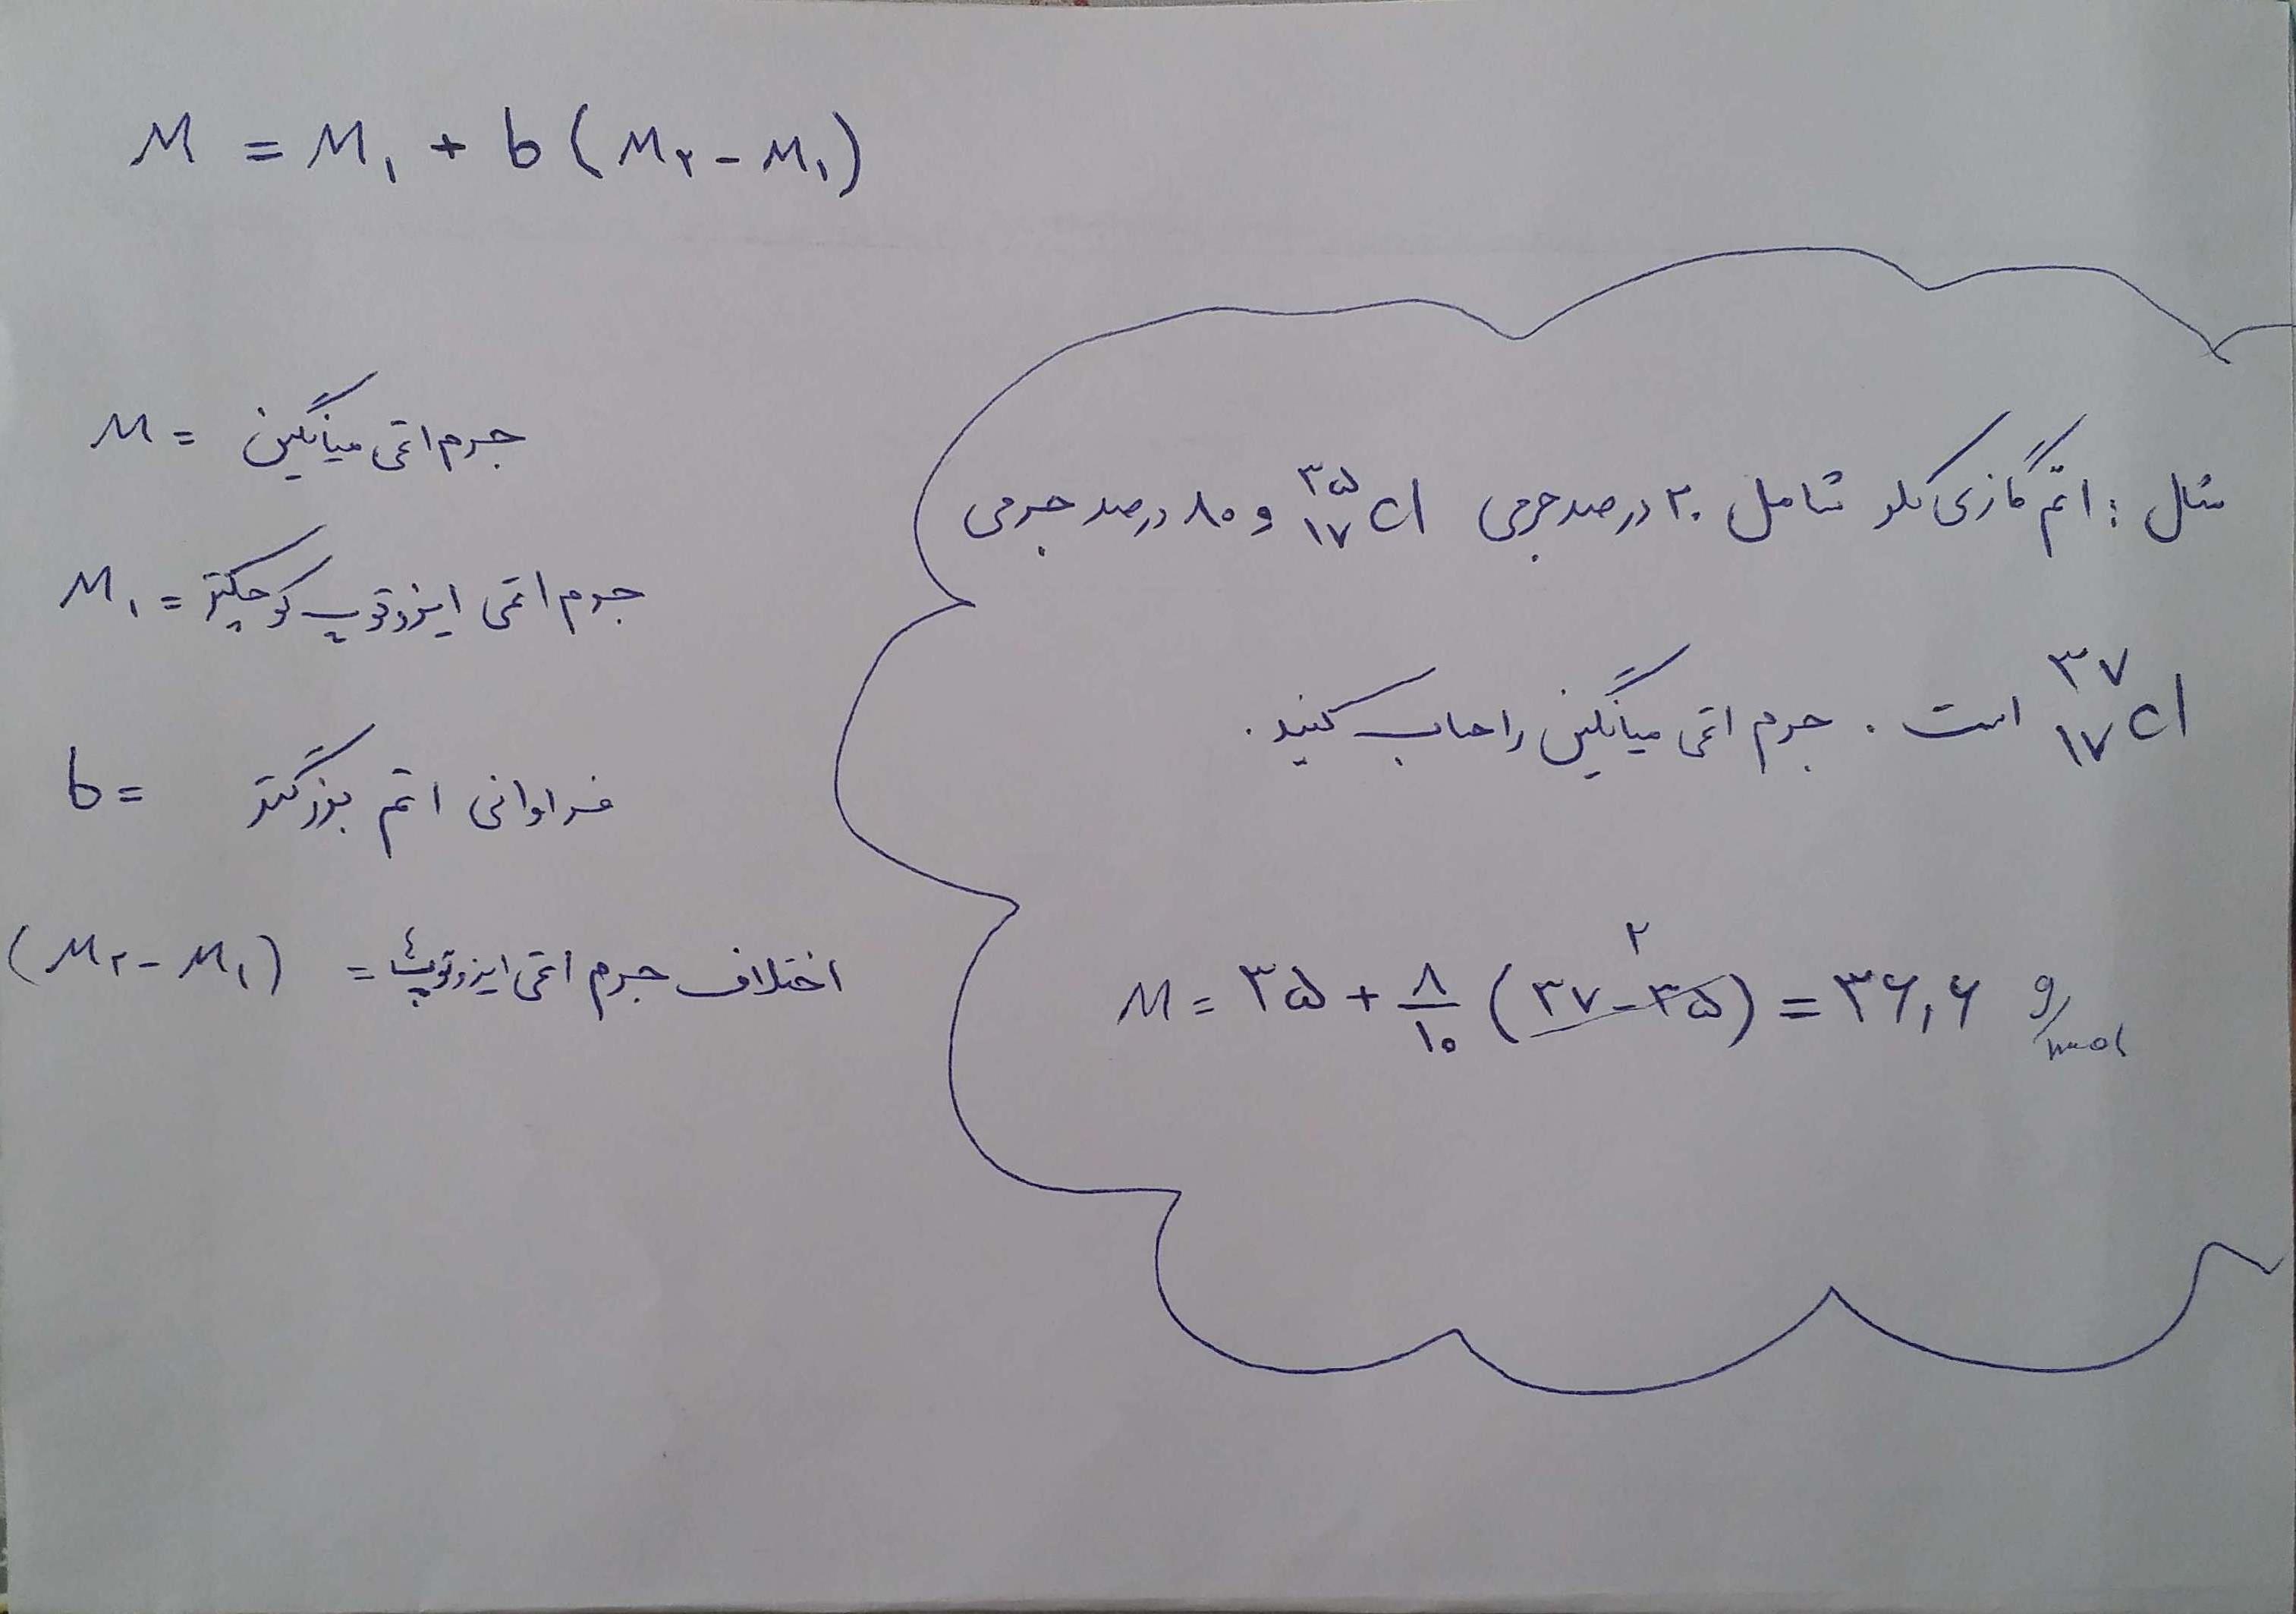 M = M۱ + b (M۲ - M۱)
M = جرم اتمی میانگین
M۱ = جرم اتمی ایزوتوپ کوچکتر
b = فراوانی اتم بزرگتر
(M۲ - M۱) = اختلاف جرم اتمی ایزوتوپها
مثال : اتم گازی کلر شامل ۲۰ درصد جرمی ³⁵₁₇Cl و ۸۰ درصد جرمی
³⁷₁₇Cl است . جرم اتمی میانگین را حساب کنید .
۲
M = ۳۵ + ۸/۱۰ (۳۷ - ۳۵) = ۳۶,۶ g/mol